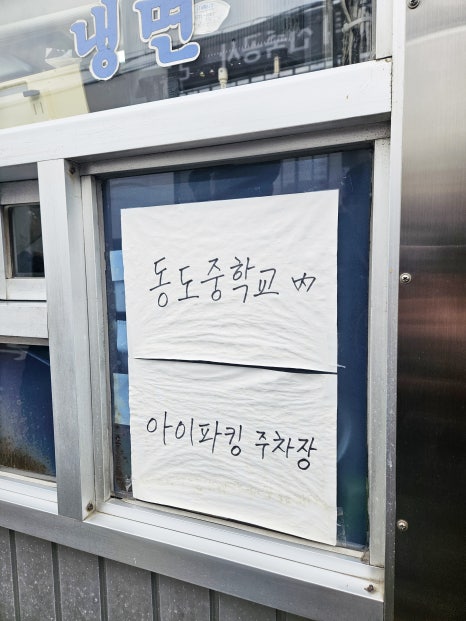 냉면
동도중학교 內
아이파킹 주차장